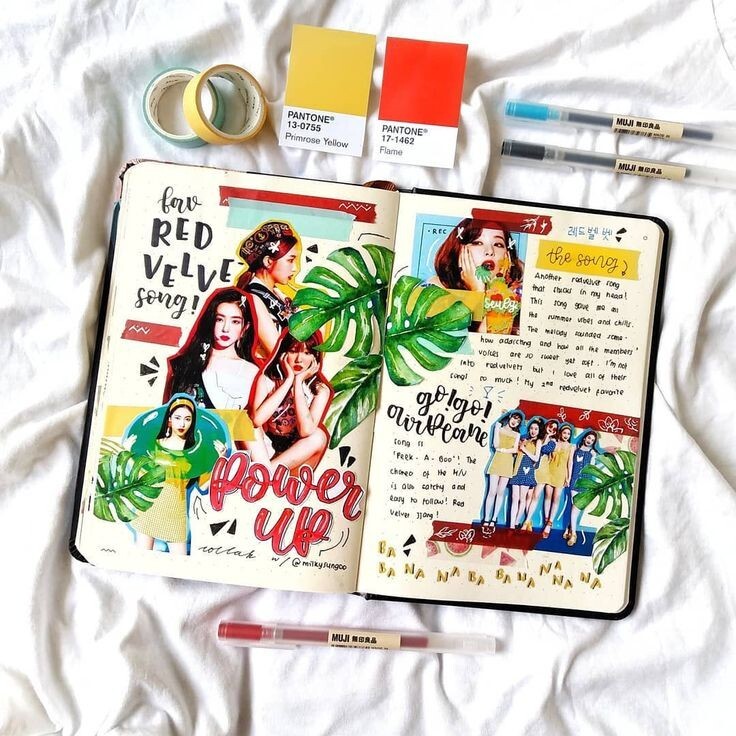 PANTONE®
13-0755
Primrose Yellow
PANTONE®
17-1462
Flame
MUJI 無印良品
MUJI 無印良品
fav
RED
VELVE
song!
Power
UP
collab w/ @milkysungoo
REC
Seulgi
레드벨벳
the song
Another redvelvet song
that sticks in my head!
This song gave me all
the summer vibes and chills.
The melody sounded some-
how addicting and how all the members'
voices are so sweet yet soft. I'm not
into redvelvets but I love all of their
songs so much! My 2nd redvelvet favorite
go! go!
airplane
song is
'Peek-A-Boo'! The
chorus of the M/V
is also catchy and
easy to follow! Red
Velvet jjang!
BA NA NA
BA NA NA BA BA NA NA NA
MUJI 無印良品